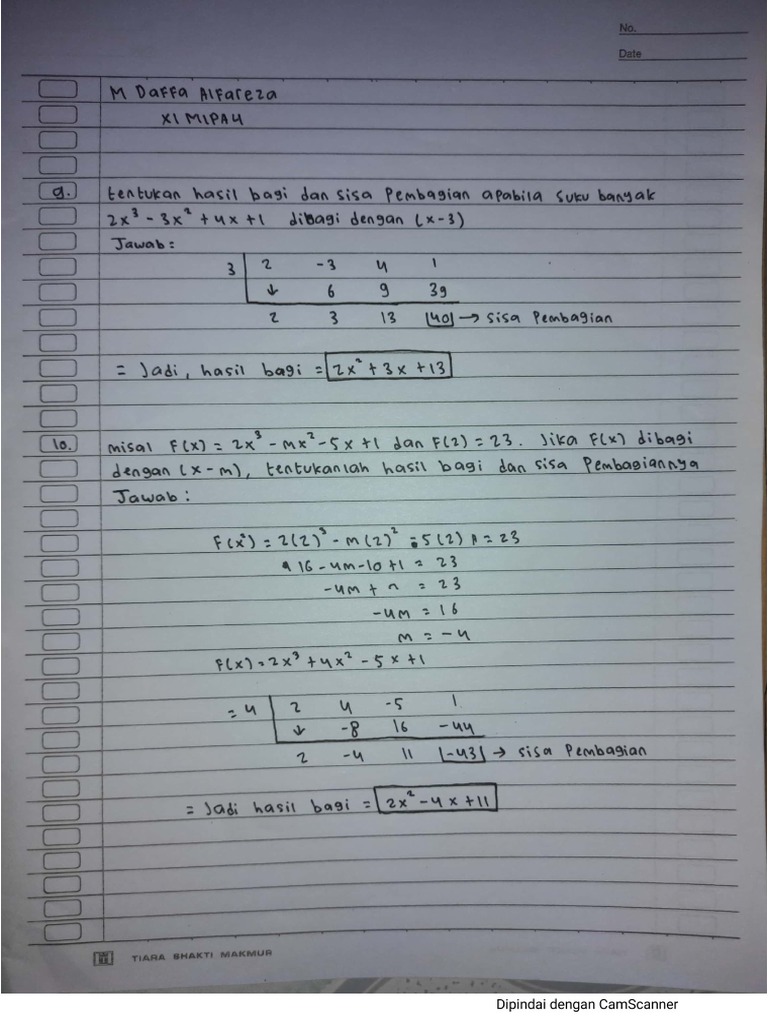 No.
Date
M Daffa Alfareza
XI MIPA4
9. tentukan hasil bagi dan sisa Pembagian apabila suku banyak
2x³ - 3x² + 4x + 1 dibagi dengan (x-3)
Jawab :
3 2 -3 4 1
↓ 6 9 39
2 3 13 |40| → sisa Pembagian
= Jadi, hasil bagi = 2x² + 3x + 13
10. misal F(x) = 2x³ - mx² - 5x + 1 dan F(2) = 23. Jika F(x) dibagi
dengan (x - m), tentukanlah hasil bagi dan sisa Pembagiannya
Jawab :
= 2(2)³ - m(2)² 5(2) = 23
16 - 4m - 10 + 1 = 23
-4m + = 23
-4m = 16
m = -4
F(x) = 2x³ + 4x² - 5x + 1
= 4 2 4 -5 1
↓ -8 16 -44
2 -4 11 |-43| → sisa Pembagian
= Jadi hasil bagi = 2x² - 4x + 11
TIARA BHAKTI MAKMUR
Dipindai dengan CamScanner